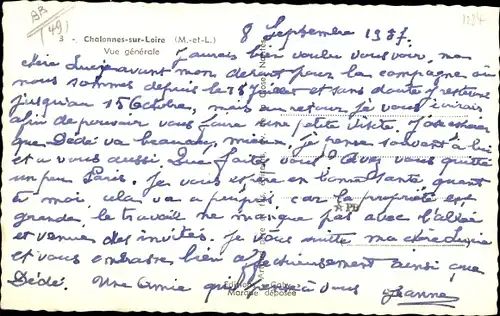 AR
(49)
1224
3 - Chalonnes-sur-Loire (M.-et-L.)
Vue générale
8 Septembre 1957.
J'aurais bien voulu vous voir, ma
chère Lucie avant mon départ pour la campagne où
nous sommes depuis le 18 Juillet et sans doute y resterons
jusqu'au 15 Octobre, mais au retour je vous écrirais
afin de pouvoir vous faire une petite visite. J'ose espérer
que Dédé va beaucoup mieux, je pense souvent à lui
et à vous aussi. Que faites vous? Avez vous quitté
un peu Paris. Je vous espère en bonne santé quant
à moi, cela va à peu près, car la propriété est
grande, le travail ne manque pas avec l'allée
et venues des invités. Je vous quitte ma chère Lucie
et vous embrasse bien affectueusement ainsi que
Dédé. Une amie qui pense à vous Jeanne
Marque déposée